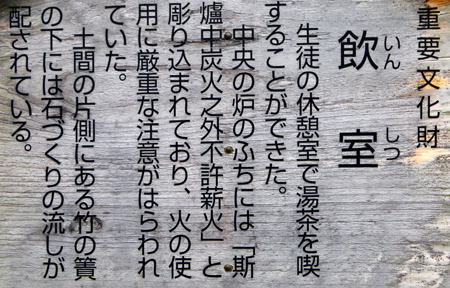 重要文化財
飲室
いんしつ
生徒の休憩室で湯茶を喫
することができた。
中央の炉のふちには「斯
爐中炭火之外不許薪火」と
彫り込まれており、火の使
用に厳重な注意がはらわれ
ていた。
土間の片側にある竹の簀
の下には石づくりの流しが
配されている。